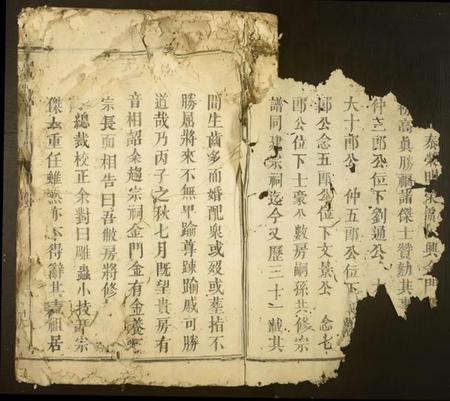 興金門
高真勝福諸傑士贊勷其事
仲三郎公位下劉通公
大十郎公 仲五郎公位下
郎公念五郎公位下文景公 念七
郎公位下士豪公數房嗣孫共修宗
譜同建宗祠迄今又歷三十一載其
間生齒多而婚配衆或娶或塟指不
勝屈將來不無卑踰尊踈踰戚可勝
道哉乃丙子之秋七月既望貴房有
音相詔余趨宗祠金門金有金養
宗長面相告曰吾敝房將修
總裁校正余對曰雕蟲小技宗
傑重任雖然亦不得辭其責祖居